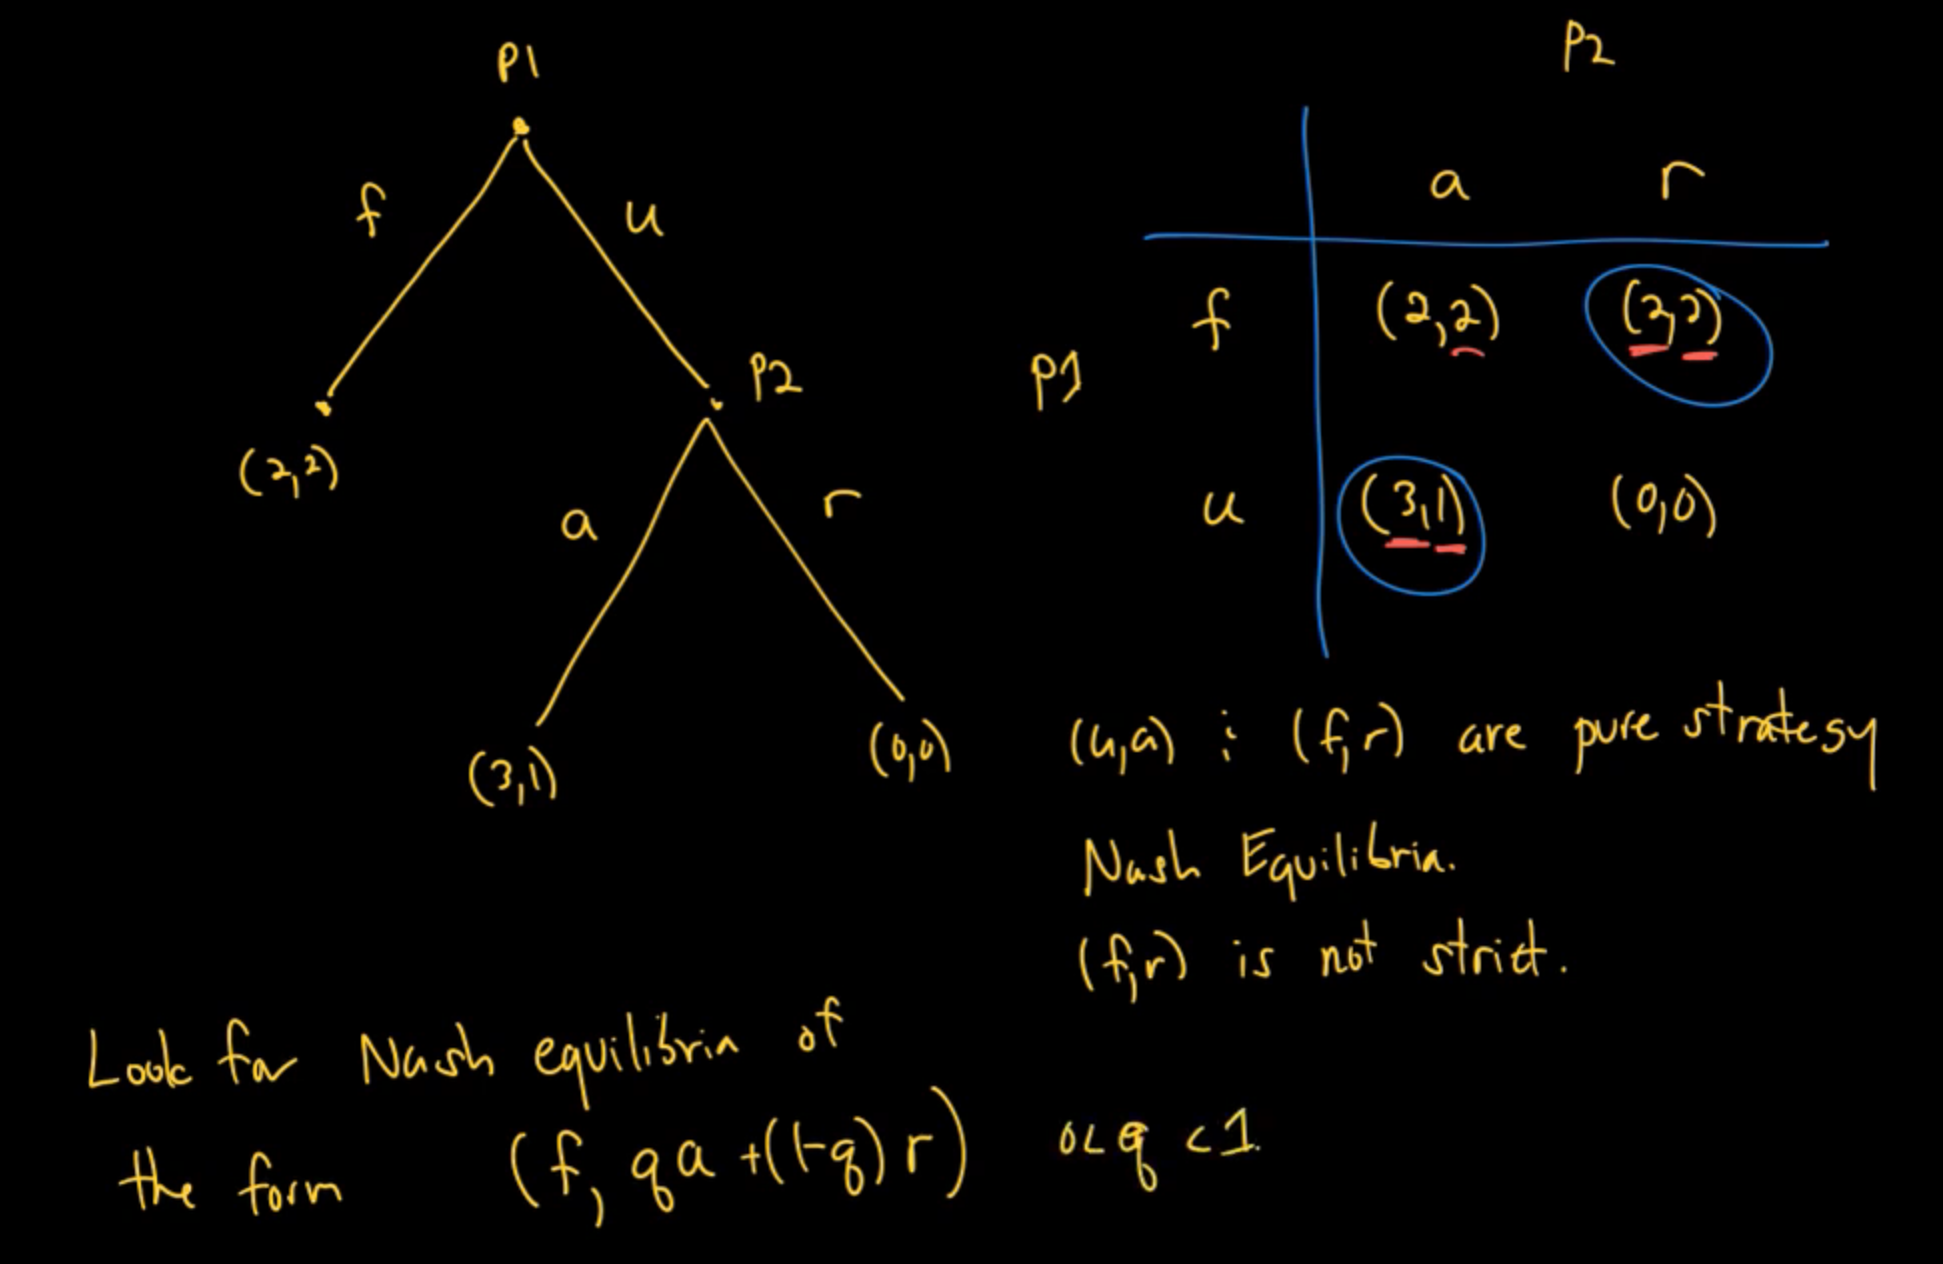 P1
f u
P2
(2,2)
a r
(3,1) (0,0)
P2
a r
f (2,2) (2,2)
P1
u (3,1) (0,0)
(u,a) ; (f,r) are pure strategy
Nash Equilibria.
(f,r) is not strict.
Look for Nash equilibria of
the form (f, qa +(1-q) r) 0< q <1.